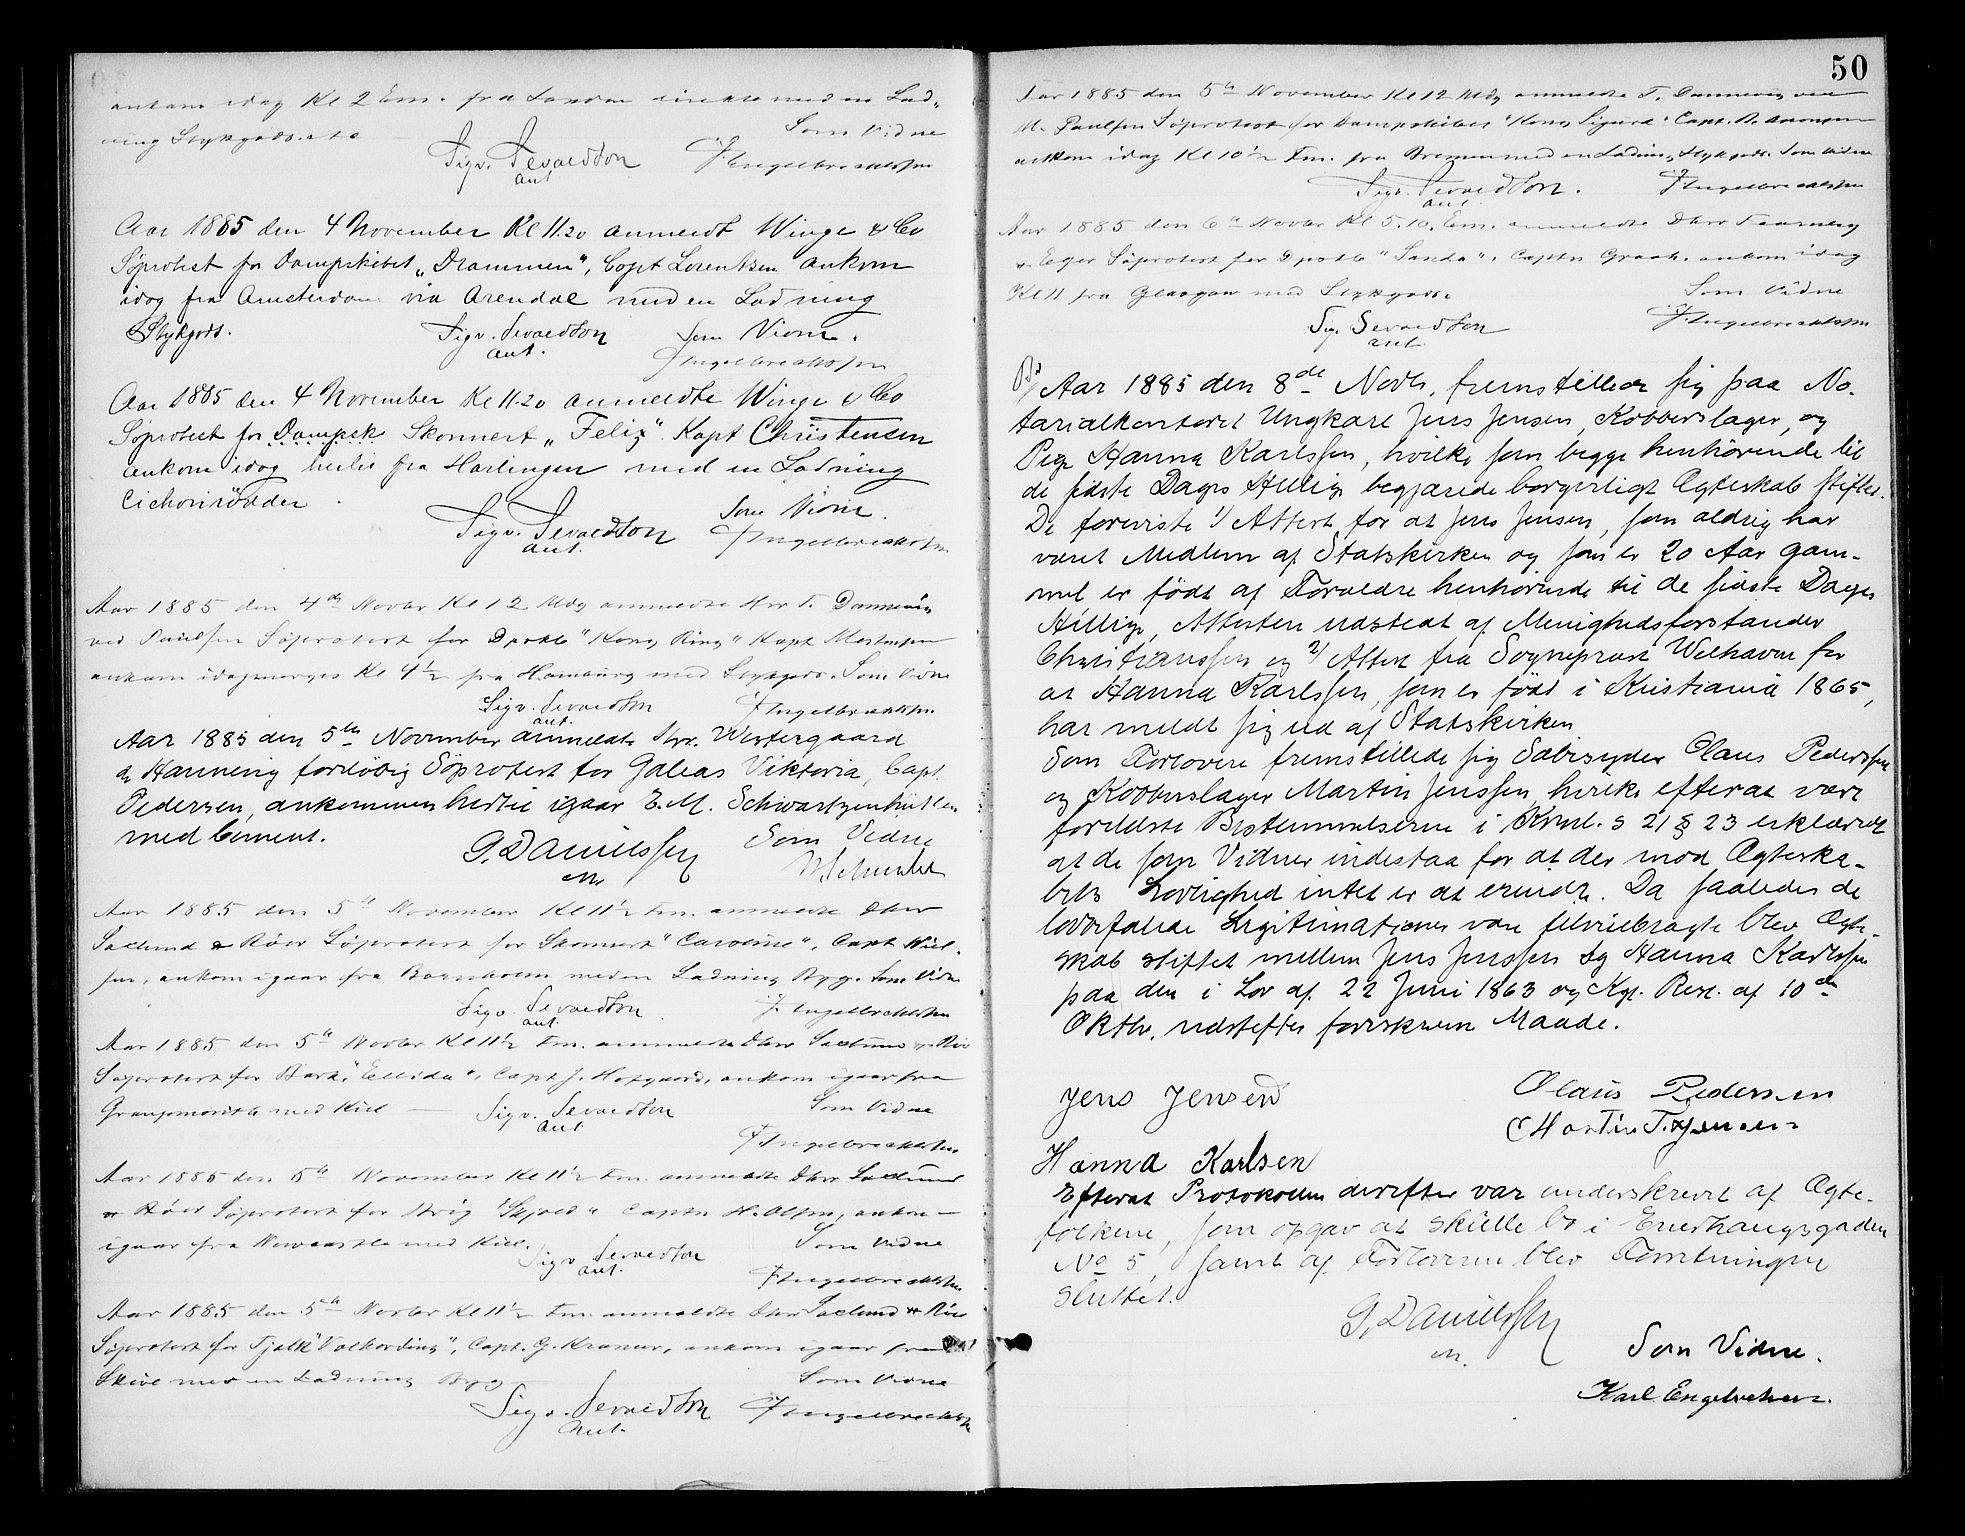 ankom idag Kl 2 Em. fra London direkte med en Lad-
ning Stykgods. etc
Som Vidne
Sigv. Sevaldson
aut
F Engelbrechtssen
Aar 1885 den 4 November Kl 11.20 anmeldt Winge & Co
Søprotest for Dampskibet „Drammen“, Capt Lorentzen ankom
idag fra Amsterdam via Arendal med en Ladning
Stykgods.
Sigv. Sevaldson
aut.
Som Vidne.
F Engelbrechtssen
Aar 1885 den 4 November Kl 11.20 anmeldte Winge & Co
Søprotest for Dampsk Skonnert „Felix“ Kapt Christensen
ankom idag hertil fra Harlingen med en Ladning
Cichorirødder
Sigv. Sevaldson
aut.
Som Vidne.
F Engelbrechtssen
Aar 1885 den 4de Novbr Kl 12 Mdg anmeldte Hrr T. Dannevig
ved Paulsen Søprotest for Dpskb "Kong Ring" Kapt
ankom idagmorges Kl 4½ fra Hamburg med Stykgods. Som Vidne
Sigv. Sevaldson
aut.
F Engelbrechtssen
Aar 1885 den 5te November anmeldte Hrr. Westergaard
& Hannevig forløbig Søprotest for Galeas Viktoria, Capt.
Pedersen, ankommen hertil igaar E.M. Schwartzenhütten
med Cement.
G. Danielssen
Som Vidne
Aar 1885 den 5te November Kl 11½ Fm. anmeldte Dhrr
Saelund & Röer Søprotest for Skonnert "Caroline", Capt Niel-
sen, ankom igaar fra Bornholm med en Ladning Byg. Som Vidne
Sigv. Sevaldson
aut.
F. Engelbrechtssen
Aar 1885 den 5te Novbr Kl 11½ Fm. anmeldte Dhrr Saelund & Röer
Søprotest for Bark. "Ellida", Capt J. Hofgaard, ankom igaar fra
Grangemouth med Kul
Sigv. Sevaldson
aut
Som Vidne
F. Engelbrechtssen
Aar 1885 den 5te November Kl 11½ Fm. anmeldte Dhrr Saelund
& Röer Søprotest for Brig "Skjold" Captn H. Olsen, ankom
igaar fra Newcastle med Kul.
Sigv Sevaldson
aut.
Som Vidne
F Engelbrechtssen
Aar 1885 den 5te Novbr Kl 11½ Fm. anmeldte Dhrr Saelund & Röer
Søprotest for Tjalk , Capt. G. Kramer, ankom igaar fra
Skive med en Ladning Byg
Sigv. Sevaldson
Aut.
Som Vidne
F Engelbrechtssen
50
Aar 1885 den 5te November Kl 12 Mdg anmeldte T. Dannevig ved
M. Paulsen Søprotest for Dampskibet "Kong Sigurd" Capt. B. Aronsen
ankom idag Kl 10½ Fm. fra Bremen med en Ladning Stykgods. Som Vidne
Sigv. Sevaldson.
aut.
F Engelbrechtssen
Aar 1885 den 6te Novbr Kl 5.10. Em. anmeldte Dhrr Fearnley
& Eger Søprotest for Dpskb "Sanda", Captn Graah. ankom idag
Kl 11 fra Glasgow med Stykgods
Som Vidne
Sig. Sevaldson
aut.
F Engelbrechtssen
Aar 1885 den 8de Novb. fremstillede sig paa No-
tarialkontoret Ungkarl Jens Jensen, Kobberslager, og
Pige Hanna Karlssen, hvilke som begge henhørende til
de sidste Dages Hellige begjærede borgerligt Ægteskab stiftet.
De foreviste 1/ Attest for at Jens Jensen, som aldrig har
været Medlem af Statskirken og som er 20 Aar gam-
mel er født af Forældre henhørende til de sidste Dages
Hellige, Attesten udstedt af Menighedsforstander
Christianssen og 2/ Attest fra Sogneprest Welhaven for
at Hanna Karlssen, som er født i Kristiania 1865,
har meldt sig ud af Statskirken.
Som Forlovere fremstillede sig Olaus Pederssen
og Kobberslager Martin Jenssen, hvilke efterat være
foreldste Bestemmelserne i Krml. s 21 § 23 erklærede
at de som Vidner indestaa for at der mod Ægteska-
bets Lovlighed intet er at erindre. Da saaledes de
lovbefalede Legitimationer vare tilveiebragte blev Ægte-
skab stiftet mellem Jens Jenssen og Hanna Karlssen
paa den i Lov af. 22 Juni 1863 og Kgl. Res. af 10de
Oktbr. udstefter foreskrevne Maade.
Jens Jensen
Olaus Pedersen
Martin T. Jensen
Hanna Karlsen
Efterat Protokollen derefter var underskrevet af Ægte-
folkene, som opgav at skulle bo i Enerhaugsgaden
No 5, samt af Forloverne blev Forretningen
sluttet.
G. Danielssen
Som Vidne.
Karl Engebretsen.